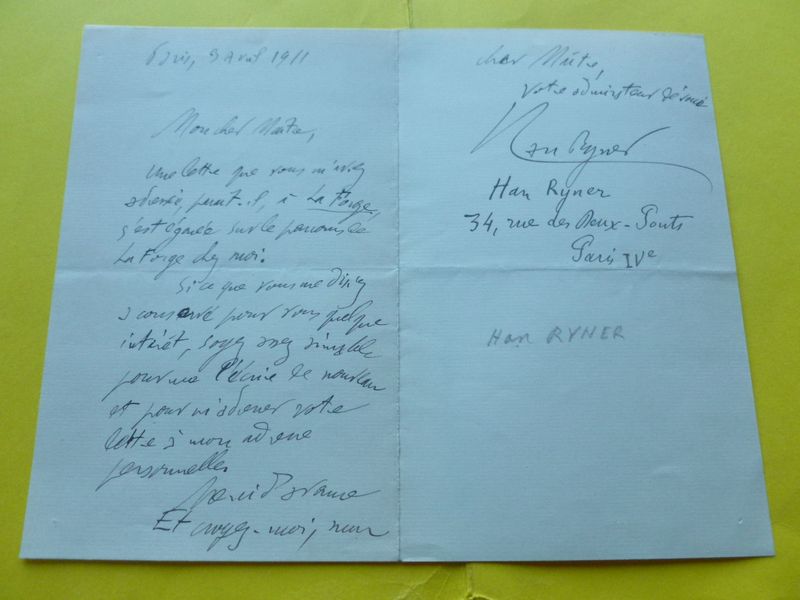 Paris, 9 Avril 1911
Mon cher Maître,
Une lettre que vous m'avez
adressée, paraît-il, à La Forge,
s'est égarée sur le parcours de
La Forge chez moi.
Si ce que vous me disiez
a conservé pour vous quelque
intérêt, soyez assez aimable
pour me l'écrire de nouveau
et pour m'adresser votre
lettre à mon adresse
personnelle.
Merci d'avance
Et croyez-moi, mon
cher Maître,
votre admirateur dévoué
Han Ryner
Han Ryner
34, rue des Deux-Ponts
Paris IVe
Han RYNER